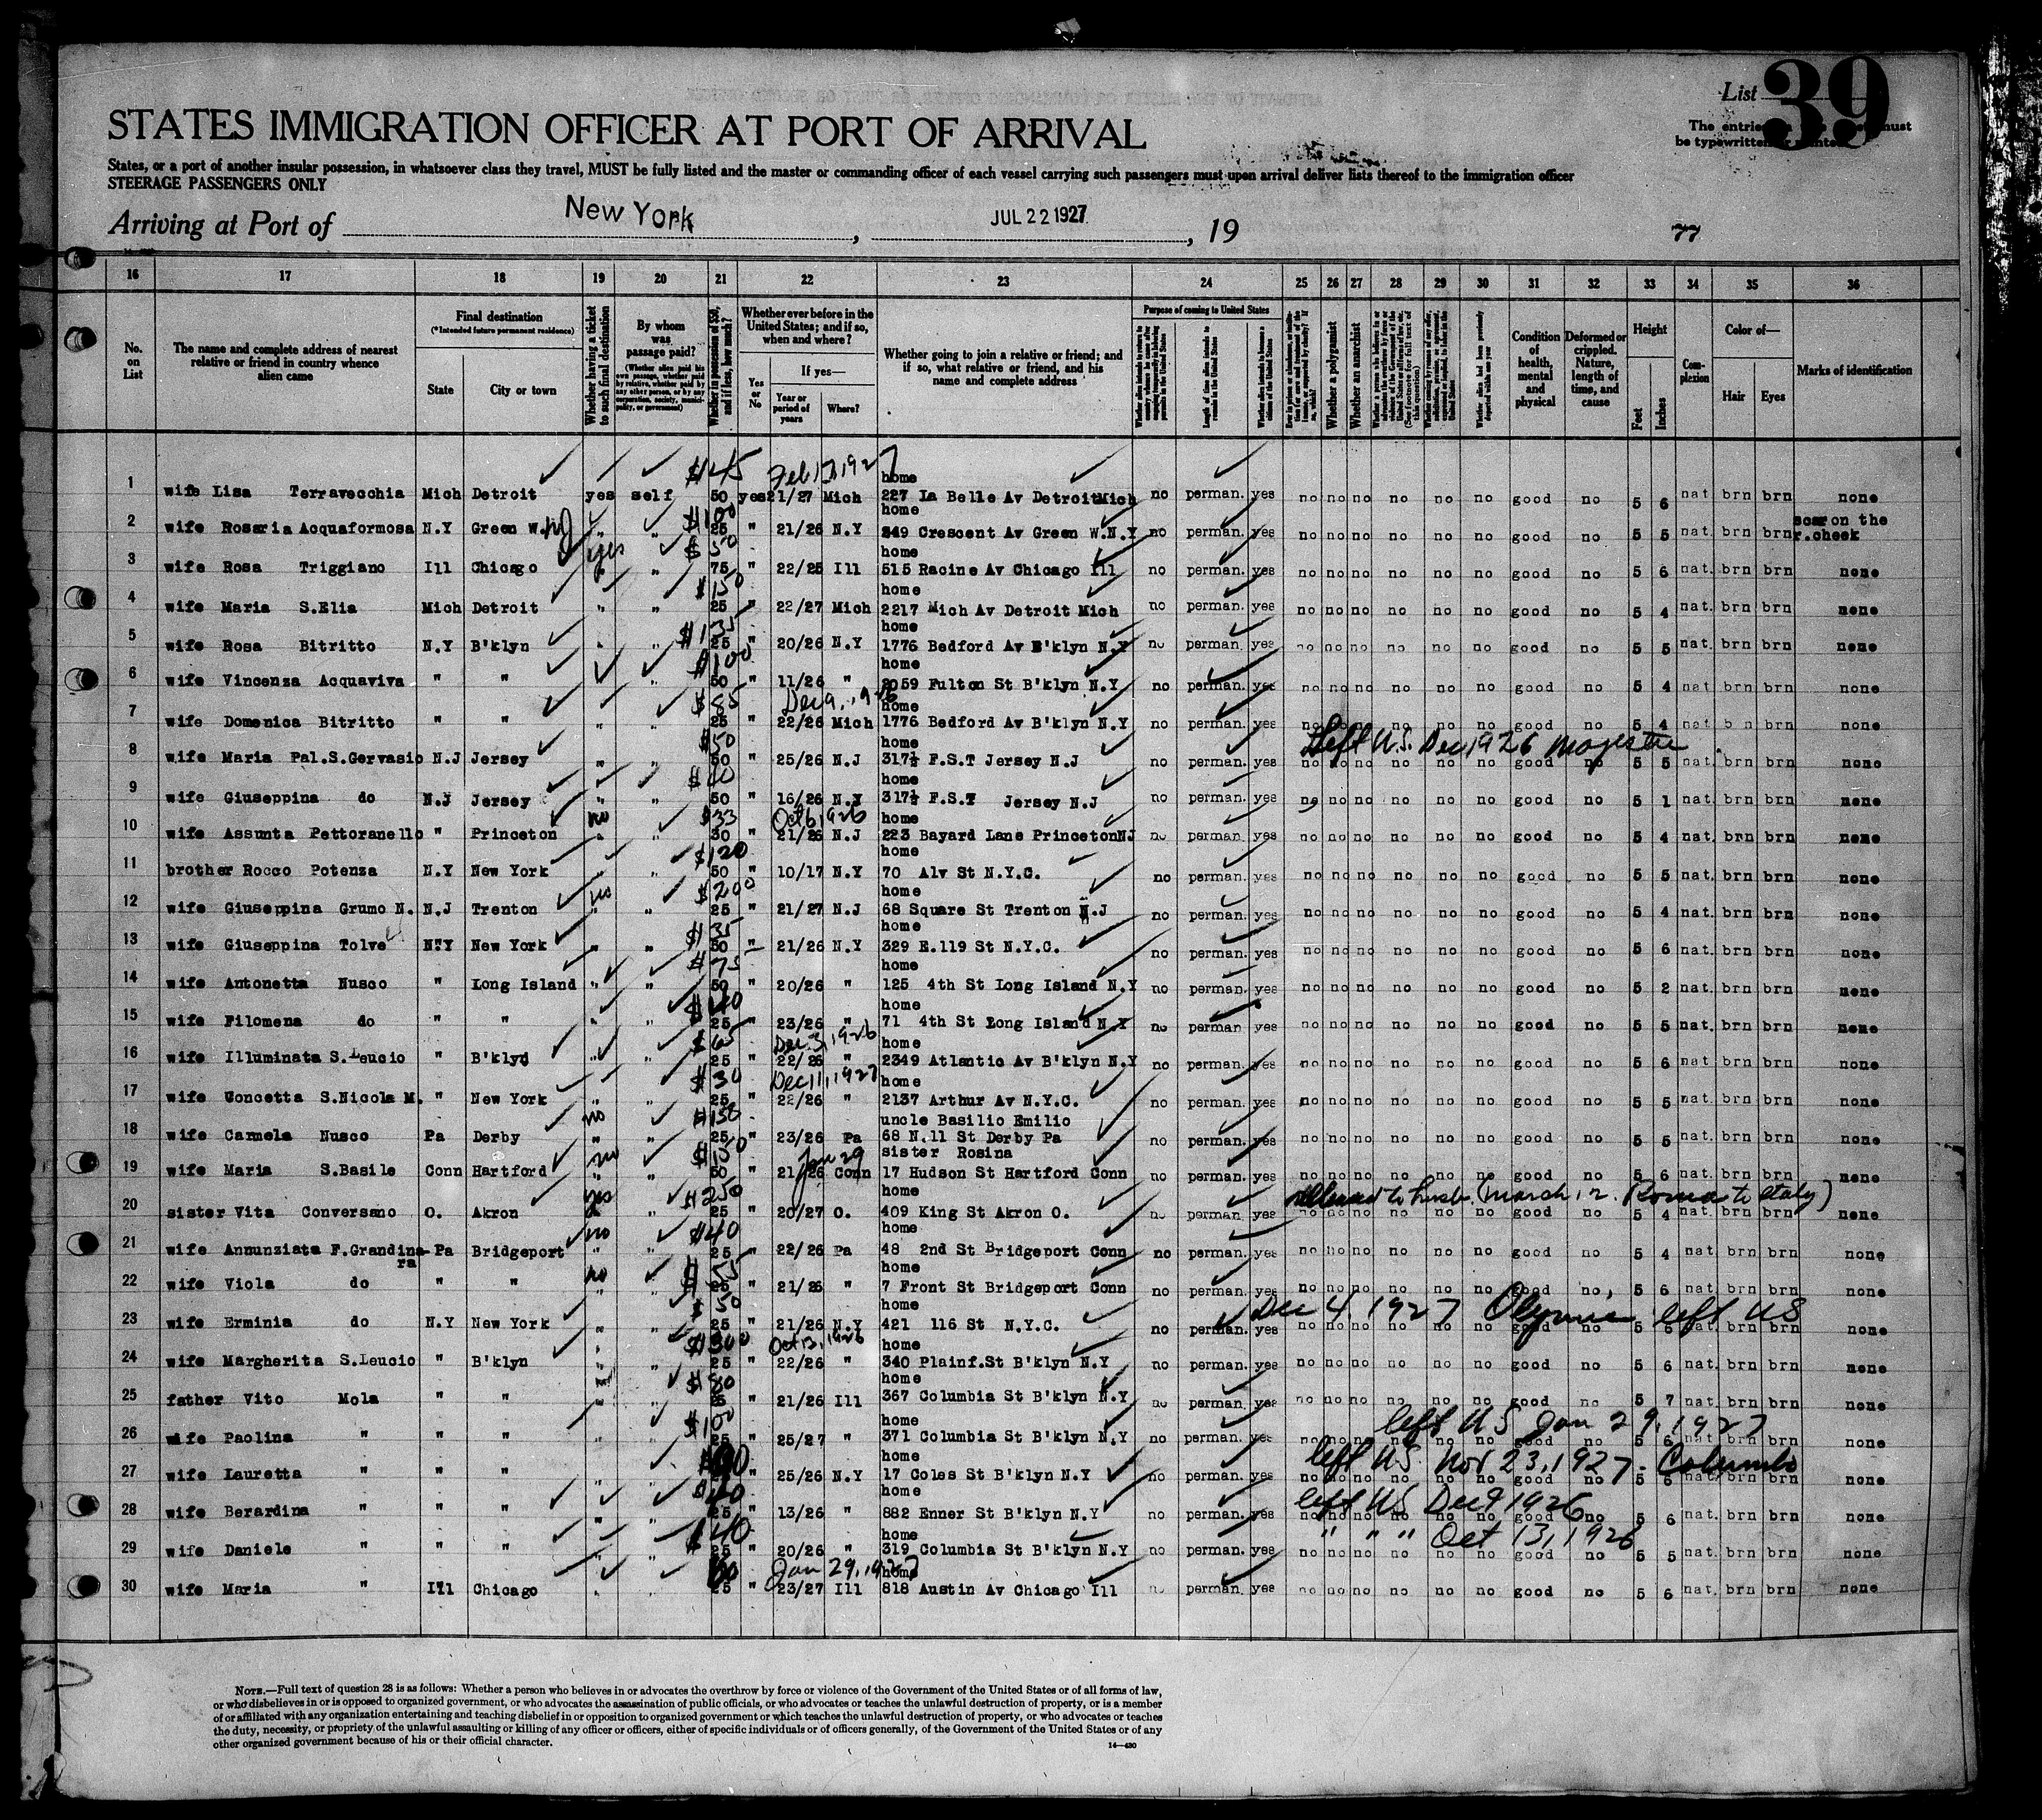 List 39
The entries must
be typewritten
STATES IMMIGRATION OFFICER AT PORT OF ARRIVAL
States, or a port of another insular possession, in whatsoever class they travel, MUST be fully listed and the master or commanding officer of each vessel carrying such passengers must upon arrival deliver lists thereof to the immigration officer
STEERAGE PASSENGERS ONLY
Arriving at Port of New York, JUL 22 1927, 19
77
16 17 18 19 20 21 22 23 24 25 26 27 28 29 30 31 32 33 34 35 36
No. on List
The name and complete address of nearest relative or friend in country whence alien came
Final destination
(*Intended future permanent residence)
State
City or town
Whether having a ticket to such final destination
By whom was passage paid?
(Whether alien paid his own passage, whether paid by relative, whether paid by any other person, or by any corporation, society, municipality, or government)
Whether in possession of $50, and if less, how much?
Whether ever before in the United States; and if so, when and where?
Yes or No
If yes—
Year or period of years
Where?
Whether going to join a relative or friend; and if so, what relative or friend, and his name and complete address
Purpose of coming to United States
Length of time alien intends to remain in the United States
Whether alien intends to become a citizen of the United States
Whether a polygamist
Whether an anarchist
Condition of health, mental and physical
Deformed or crippled. Nature, length of time, and cause
Height
Feet
Inches
Complexion
Color of—
Hair
Eyes
Marks of identification
$45 Feb 17, 1927 home
1 wife Lisa Terravecchia Mich Detroit yes self 50 yes 21/27 Mich 227 La Belle Av Detroit Mich no perman. yes no no no no no no good no 5 6 nat brn brn none
$100 home
2 wife Rosaria Acquaformosa N.Y Green W. NJ " " 25 " 21/26 N.Y 249 Crescent Av Green W.N.Y no perman. yes no no no no no no good no 5 5 nat. brn brn scar on the r.cheek
yes $50 home
3 wife Rosa Triggiano Ill Chicago " " 75 " 22/25 Ill 515 Racine Av Chicago Ill no perman. yes no no no no no no good no 5 6 nat. brn brn none
$150 home
4 wife Maria S.Elia Mich Detroit " " 25 " 22/27 Mich 2217 Mich Av Detroit Mich no perman. yes no no no no no no good no 5 4 nat. brn brn none
$135 home
5 wife Rosa Bitritto N.Y B'klyn " " 25 " 20/26 N.Y 1776 Bedford Av B'klyn N.Y no perman. yes no no no no no no good no 5 5 nat. brn brn none
$100 home
6 wife Vincenza Acquaviva " " " 50 " 11/26 " 2059 Fulton St B'klyn N.Y no perman. yes no no no no no no good no 5 4 nat brn brn none
$85 Dec 9, 1926 home
7 wife Domenica Bitritto " " " " 25 " 22/26 Mich 1776 Bedford Av B'klyn N.Y no perman. yes no no no no no no good no 5 4 nat b n brn none
$50 home Left U.S. Dec 1926 Majestic
8 wife Maria Pal.S.Gervasio N.J Jersey " " 50 " 25/26 N.J 317½ F.S.T Jersey N.J no perman. yes no no no no no no good no 5 5 nat. brn brn none
home
9 wife Giuseppina do N.J Jersey " " 50 " 16/26 N.Y 317½ F.S.T Jersey N.J no perman. yes no no no no no no good no 5 1 nat. brn brn none
no $33 Oct 6, 1926 home
10 wife Assunta Pettoranello " Princeton " " 30 " 21/26 N.J 223 Bayard Lane Princeton NJ no perman. yes no no no no no no good no 5 4 nat. brn brn none
$120 home
11 brother Rocco Potenza N.Y New York " " 50 " 10/17 N.Y 70 Alv St N.Y.C. no perman. yes no no no no no no good no 5 5 nat. brn brn none
no $200 home
12 wife Giuseppina Grumo N. N.J Trenton " " 25 " 21/27 N.J 68 Square St Trenton N.J no perman. yes no no no no no no good no 5 4 nat. brn brn none
$35 home
13 wife Giuseppina Tolve N.Y New York " " 50 " 21/26 N.Y 329 E.119 St N.Y.C. no perman. yes no no no no no no good no 5 6 nat. brn brn none
$75 home
14 wife Antonetta Nusco " Long Island " " 50 " 20/26 " 125 4th St Long Island N.Y no perman. yes no no no no no no good no 5 2 nat. brn brn none
$40 home
15 wife Filomena do " " " " 25 " 23/26 " 71 4th St Long Island N Y no perman yes no no no no no no good no 5 5 nat. brn brn none
$65 Dec. 3, 1926 home
16 wife Illuminata S.Leucio " B'klyd " " 25 " 22/26 " 2349 Atlantic Av B'klyn N.Y no perman. yes no no no no no no good no 5 6 nat brn brn none
$30 Dec 11, 1927 home
17 wife Concetta S.Nicola M. " New York " " 25 " 22/26 " 2137 Arthur Av N.Y.C. no perman. yes no no no no no no good no 5 5 nat. brn brn none
no $150 uncle Basilio Emilio
18 wife Carmela Nusco Pa Derby " " 25 " 23/26 Pa 68 N.11 St Derby Pa no perman. yes no no no no no no good no 5 5 nat. brn brn none
no $150 Jan 29 sister Rosina
19 wife Maria S.Basile Conn Hartford " " 50 " 21/26 Conn 17 Hudson St Hartford Conn no perman. yes no no no no no no good no 5 6 nat. brn brn none
yes $250 home to husb. (March, 12. Roma to Italy)
20 sister Vita Conversano O. Akron " 25 " 20/27 O. 409 King St Akron O. no perman. yes no no no no no no good no 5 4 nat. brn brn none
no $40 home
21 wife Annunziata F.Grandina-ra Pa Bridgeport " " 25 " 22/26 Pa 48 2nd St Bridgeport Conn no perman. yes no no no no no no good no 5 4 nat brn brn none
no $55 home
22 wife Viola do " " " 25 " 21/26 " 7 Front St Bridgeport Conn no perman. yes no no no no no no good no 5 6 nat. brn brn none
$50 home Dec 4, 1927 left US
23 wife Erminia do N.Y New York " " 25 " 21/26 N.Y 421 116 St N.Y.C. no perman. yes no no no no no no good no 5 6 nat. brn brn none
$300 Oct 13, 1926 home
24 wife Margherita S.Leucio " B'klyn " " 25 " 22/26 " 340 Plainf.St B'klyn N.Y no perman. yes no no no no no no good no 5 6 nat. brn brn none
$80 home
25 father Vito Mola " " " " 25 " 21/26 Ill 367 Columbia St B'klyn N.Y no perman. yes no no no no no no good no 5 7 nat. brn brn none
$100 home left US Jan 29, 1927
26 wife Paolina " " " " " 25 " 25/27 " 371 Columbia St B'klyn N.Y no perman. yes no no no no no no good no 5 6 nat brn brn none
home left US. Nov 23, 1927 - Columbo
27 wife Lauretta " " " " " 25/26 N.Y 17 Coles St B'klyn N.Y no perman. yes no no no no no no good no 5 6 nat brn brn none
$40 home left US Dec 9 1926
28 wife Berardina " " " " " 25 " 13/26 " 882 Enner St B'klyn N.Y no perman. yes no no no no no no good no 5 6 nat. brn brn none
$40 home " " " Oct 13, 1926
29 wife Daniele " " " " " 25 " 20/26 " 319 Columbia St B'klyn N.Y no perman. yes no no no no no no good no 5 5 nat. brn brn none
Jan 29, 1927 home
30 wife Maria " Ill Chicago " " 25 " 23/27 Ill 818 Austin Av Chicago Ill no perman. yes no no no no no no good no 5 6 nat. brn brn none
NOTE.—Full text of question 28 is as follows: Whether a person who believes in or advocates the overthrow by force or violence of the Government of the United States or of all forms of law,
or who disbelieves in or is opposed to organized government, or who advocates the assassination of public officials, or who advocates or teaches the unlawful destruction of property, or is a member
of or affiliated with any organization entertaining and teaching disbelief in or opposition to organized government or which teaches the unlawful destruction of property, or who advocates or teaches
the duty, necessity, or propriety of the unlawful assaulting or killing of any officer or officers, either of specific individuals or of officers generally, of the Government of the United States or of any
other organized government because of his or their official character.
14—430